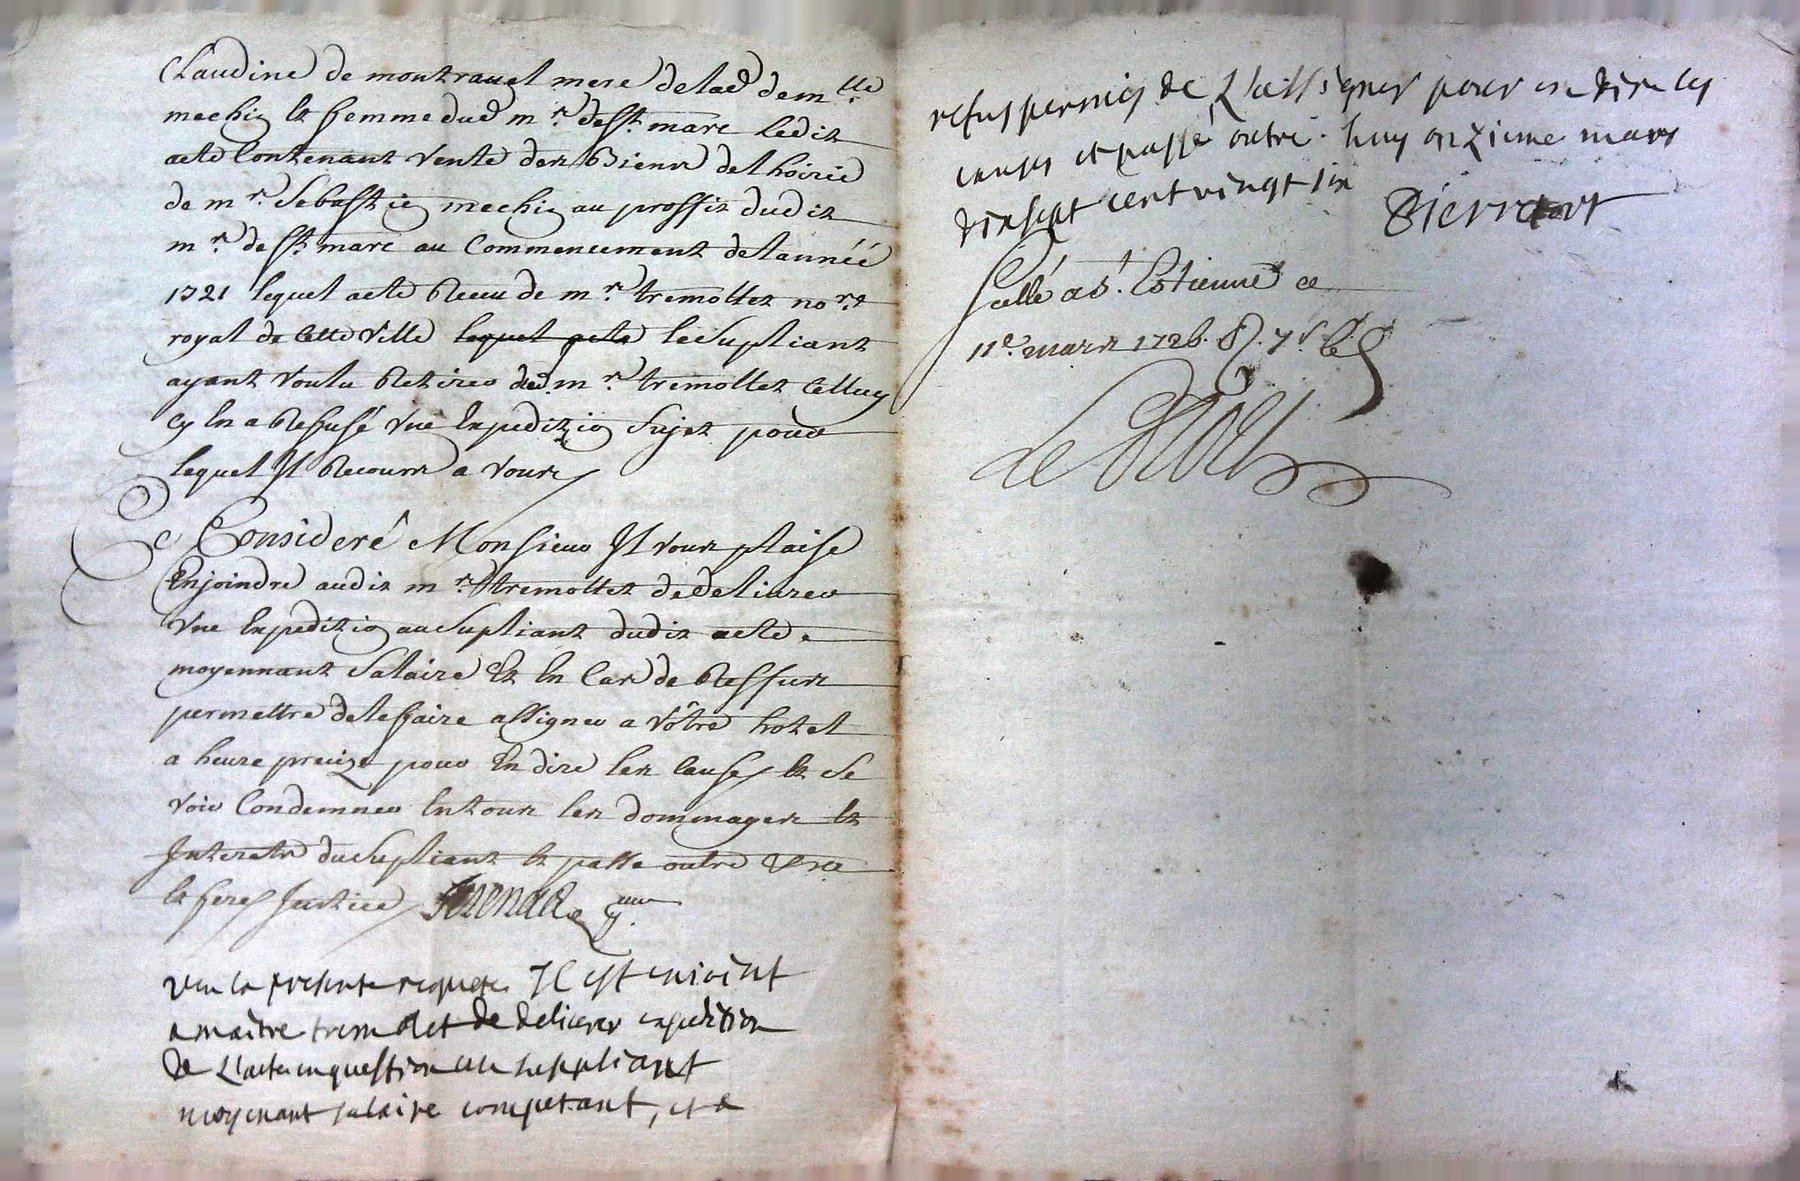 Claudine de montravel mere de lad demlle
mechin et femme dud mr. de st. marc ledit
acte Contenant vente des Biens de lhoirie
de mr. Sebastien mechin au proffit dudit
mr. de st. marc au Commencement de lannéé
1721 lequel acte Receu de mr. tremollet nore
royal de Cette ville lequel acte le Supliant
ayant voulu Retirer dud. mr. tremollet Celluy
cy En a Refusé vne Expedition Sujet pour
lequel Il Recourt a vous
Ce Consideré Monsieur Il vous plaise
Enjoindre audit mr. tremollet de deliurer
vne Expedition au supliant dudit acte
moyennant Salaire Et En Cas de Reffus
permettre de le faire assigner a vôtre hotel
a heure precize pour En dire les Causes et Se
voir Condemner En tous les dommages et
Interets du supliant et passé outre
et ferés Justice
veu la presente requete Il est enioint
a maitre tremolet de deliurer expedition
de L'acte en question au suppliant
moyenant salaire competant, et a
refus permis de L'assigner pour en dire les
causes et passé outre. huy onzieme mars
dixsept cent vingt six
Sellé a st. Estienne ce
11e. mars 1726.